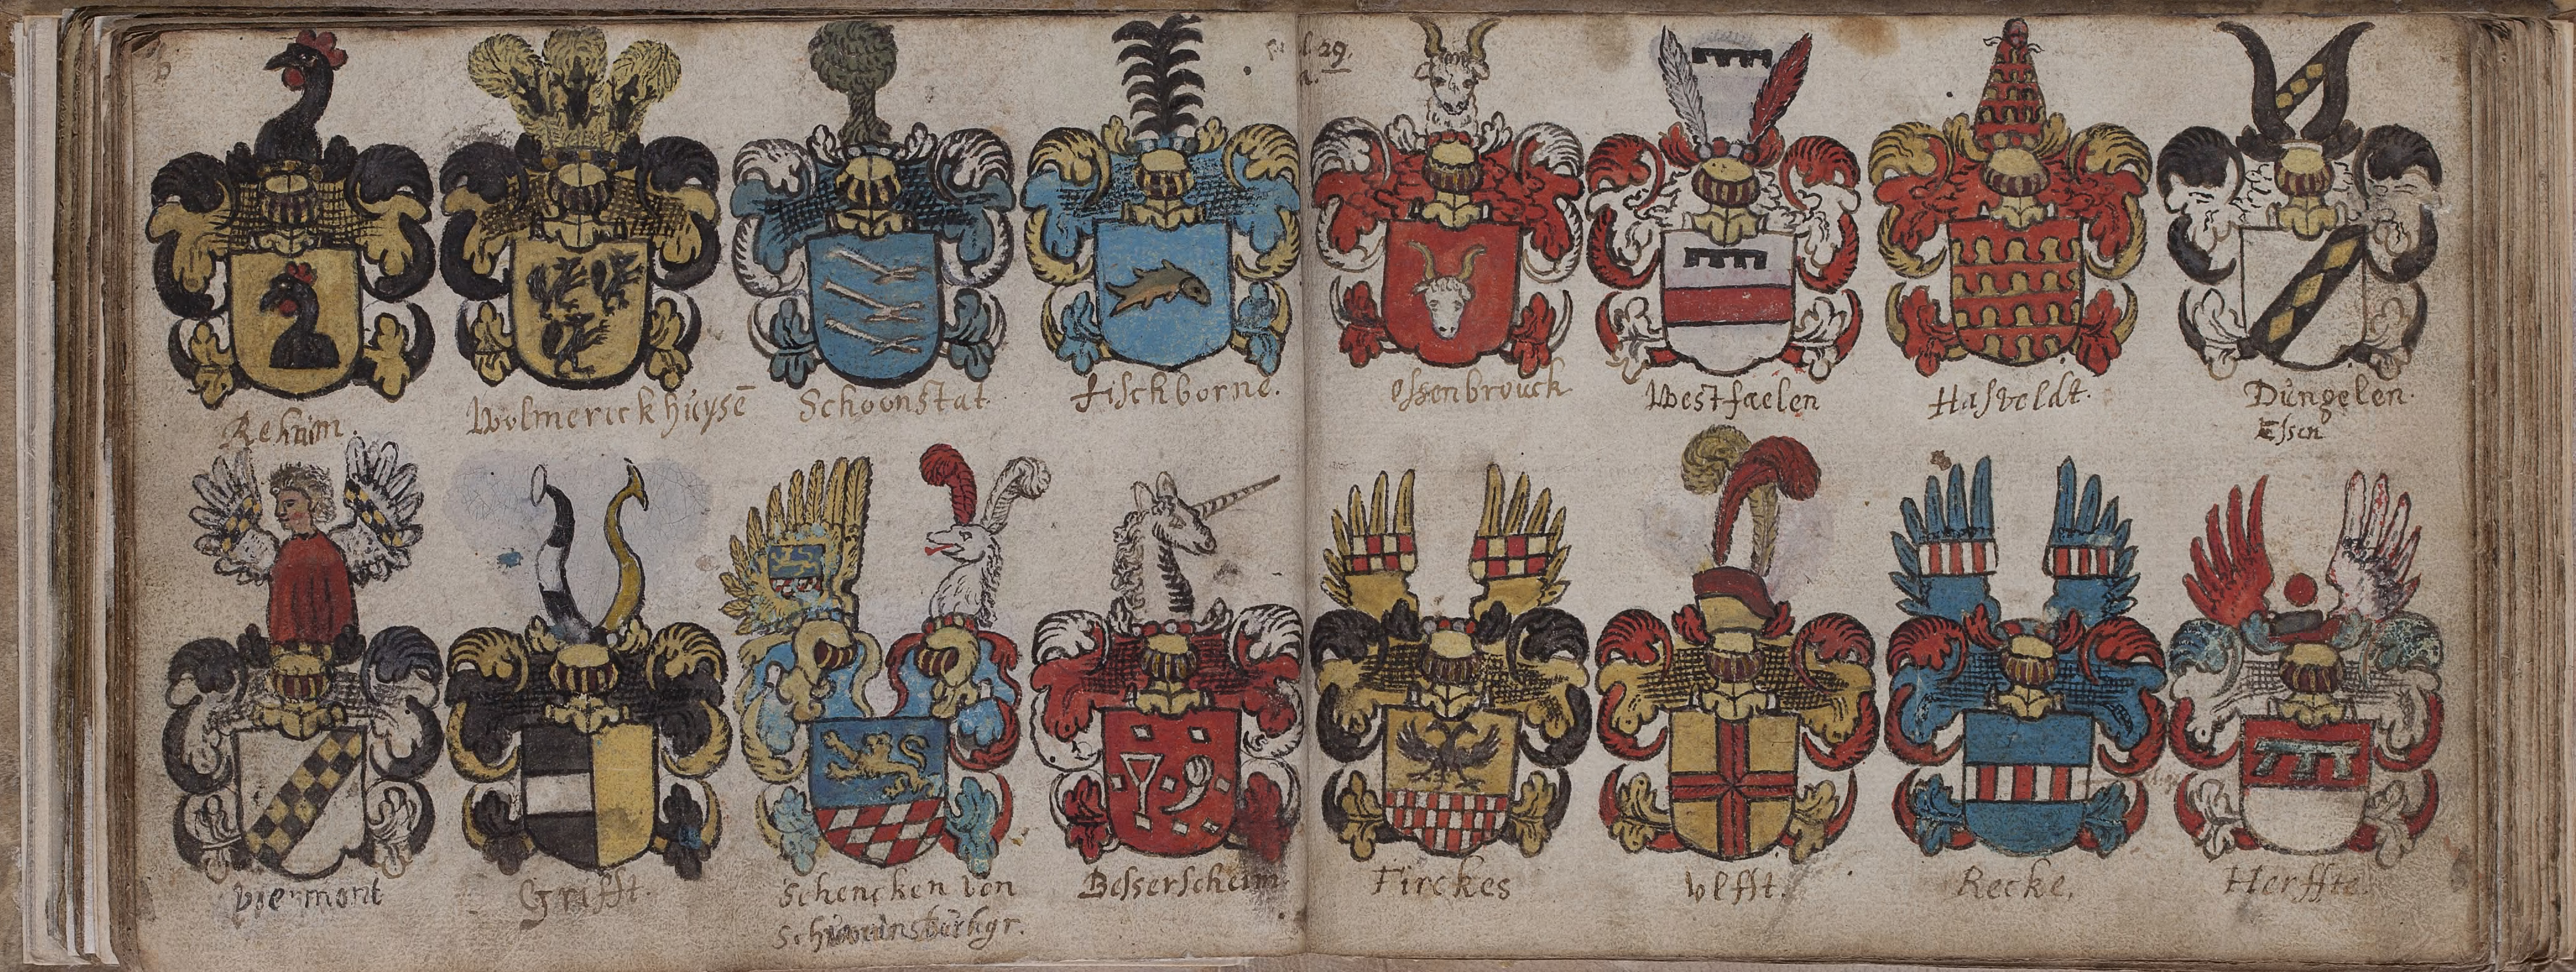 29.
Rehum.
Wolmerickhuÿsē
Schoonstat.
Fischborne.
Essenbrouck
Westfaelen
Hasveldt.
Dungelen.
Essen
Viermont
Grifft.
Schencken von
Besserscheim
Firckes
Wlfft.
Recke.
Herffte.